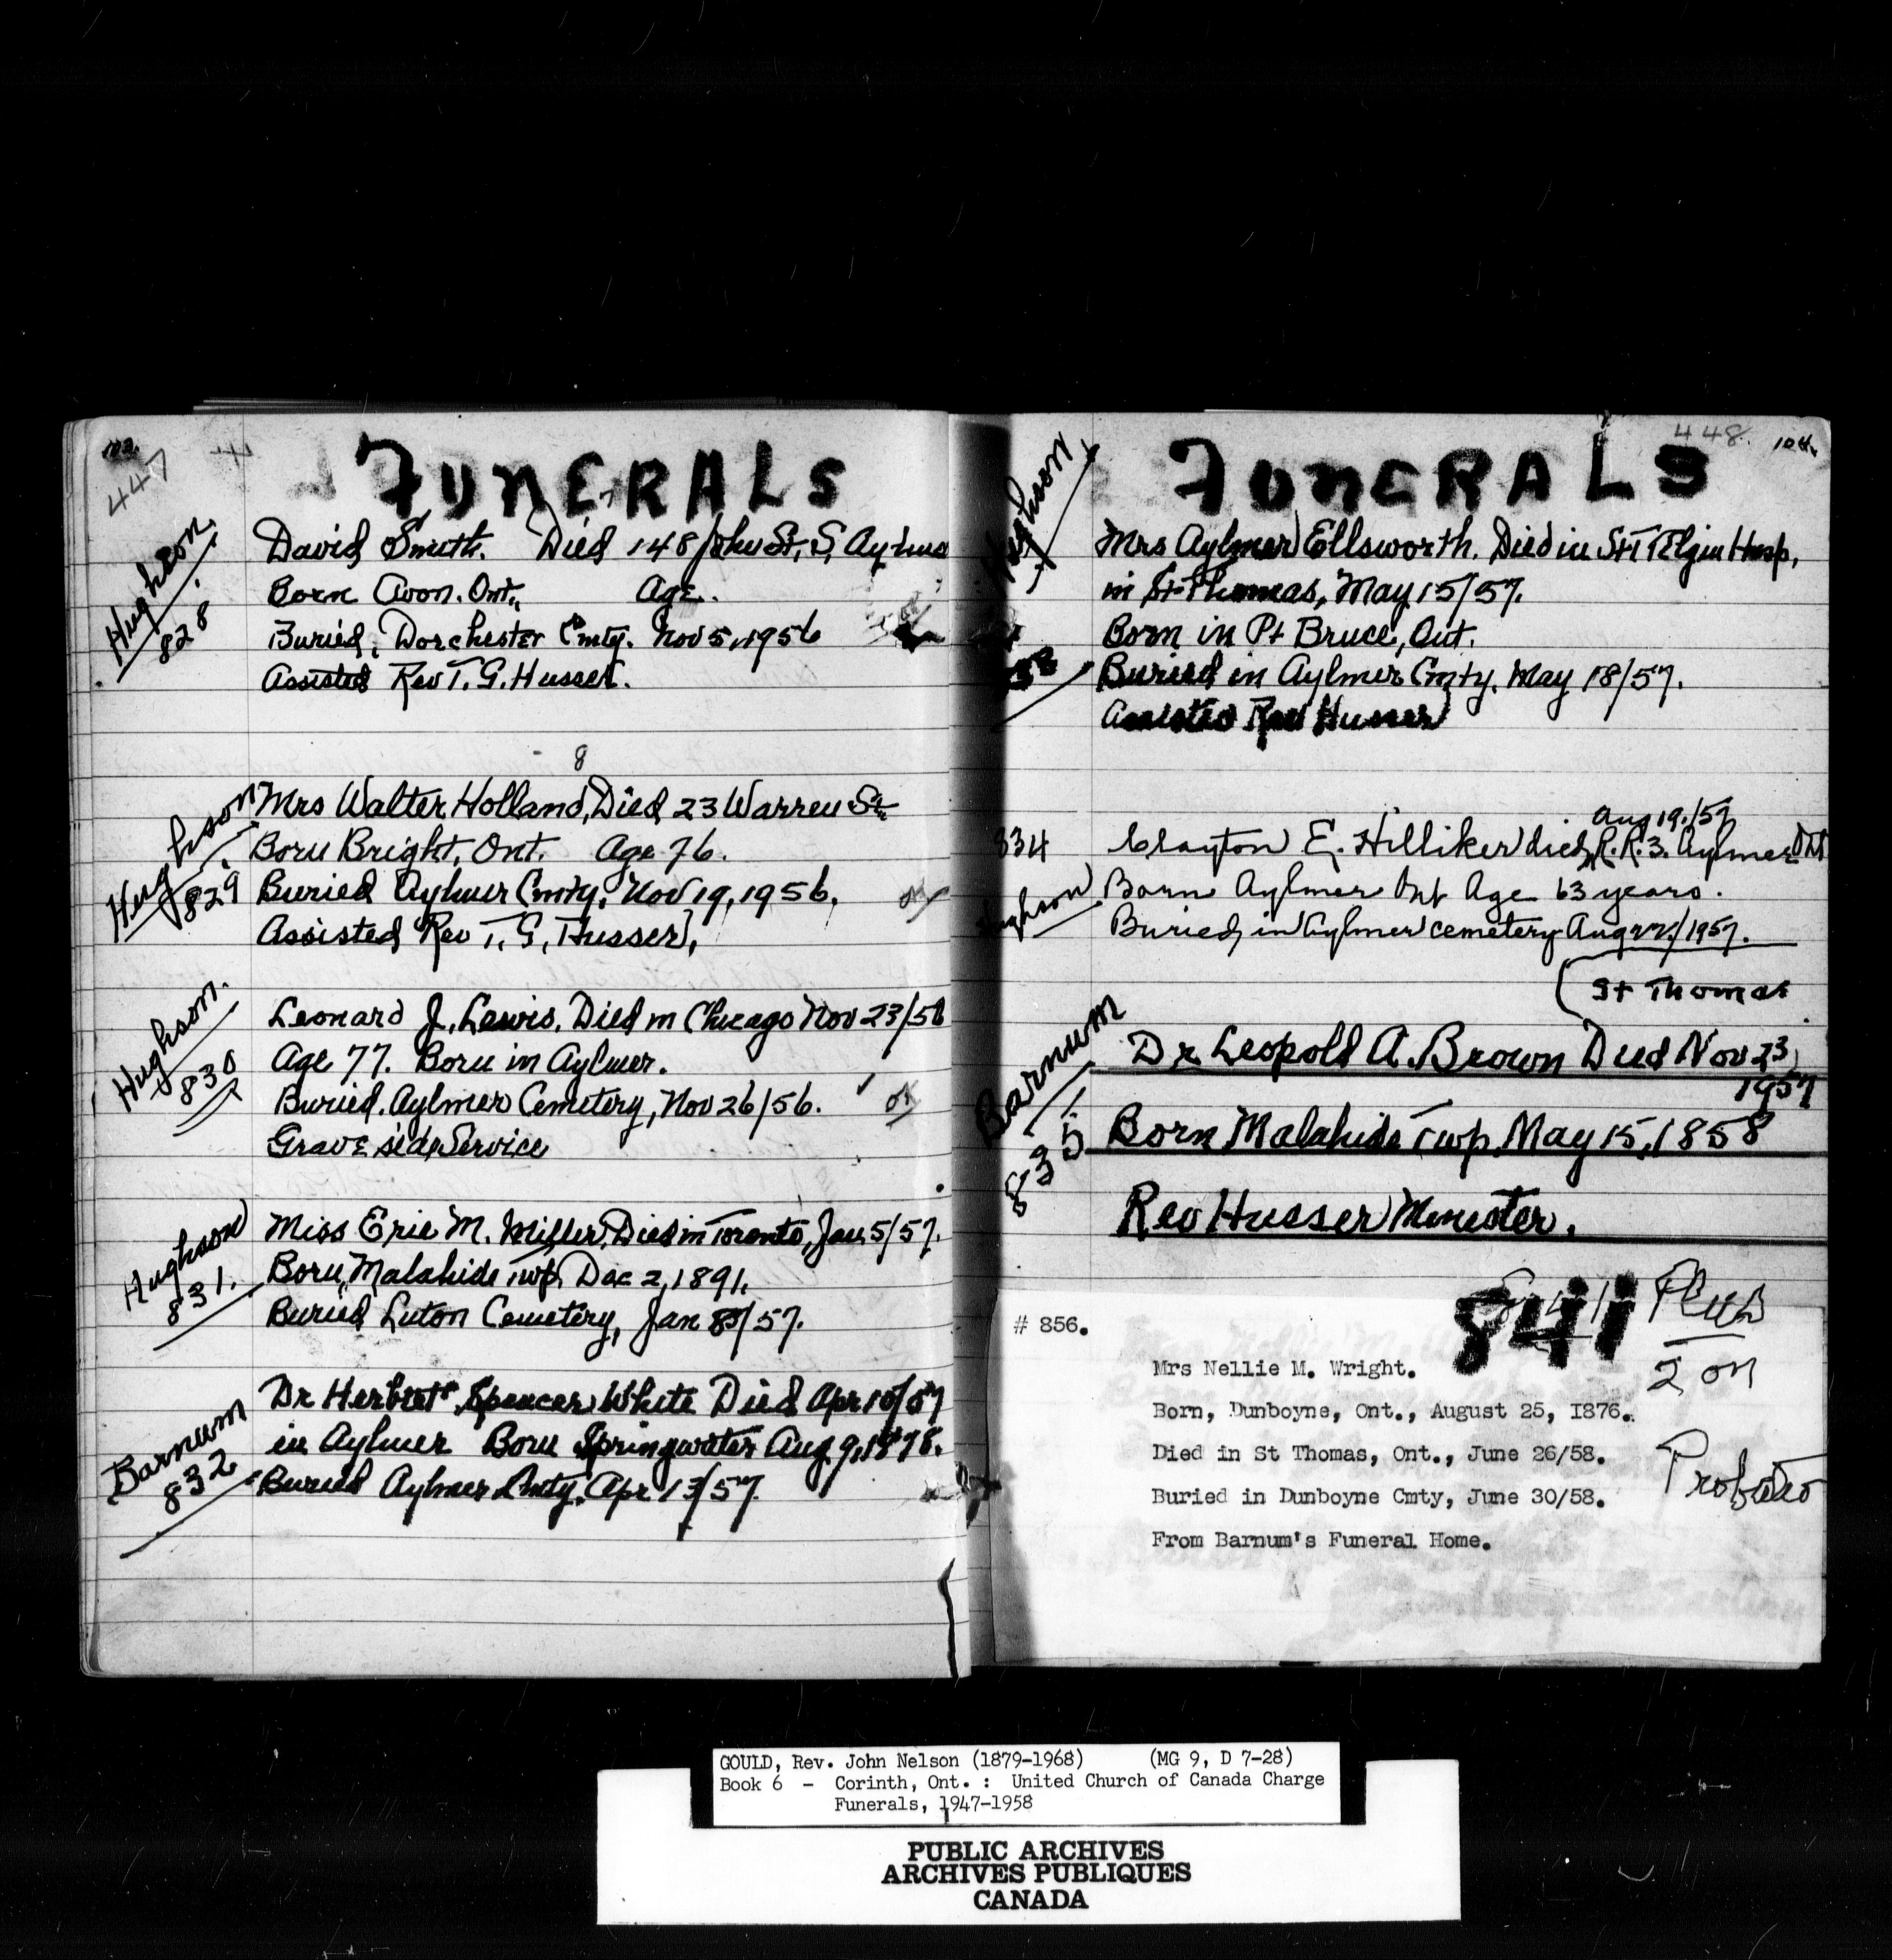 447
FUNERALS
Hughson.
828
David Smith. Died 148 John St, S, Aylmer
Born Avon. Ont., Age.
Buried, Dorchester Cmty. Nov 5, 1956
Assisted Rev T. G. Husser.
8
Hughson
829
Mrs Walter Holland, Died 23 Warren St.
Born Bright, Ont. Age 76.
Buried Aylmer Cmty. Nov 19, 1956. ok
Assisted Rev T, G, Husser,
Hughson.
830
Leonard J. Lewis. Died in Chicago Nov 23/56
Age 77. Born in Aylmer.
Buried. Aylmer Cemetery, Nov 26/56. ok
Grave side Service
Hughson
831.
Miss Erie M. Miller, Died in Toronto, Jan 5/57.
Born, Malahide Twp, Dec 2, 1891.
Buried Luton Cemetery, Jan 8/57.
Barnum
832
Dr Herbert Spencer White Died Apr 10/57
in Aylmer Born Springwater Aug 9, 1878.
Buried Aylmer Cmty. Apr 13/57.
448. 104.
FUNERALS
Hughson
Mrs Aylmer Ellsworth. Died in St T Elgin Hosp.
in St Thomas, May 15/57.
Born in Pt Bruce, Ont.
Buried in Aylmer Cmty. May 18/57.
Assisted Rev Husser
Aug 19/57
834 Clayton E. Hilliker died R.R.3. Aylmer Ont
Hughson
Born Aylmer Ont Age 63 years.
Buried, in Aylmer cemetery Aug 22/1957.
(St Thomas
Barnum
835
Dr Leopold A. Brown Died Nov 23
1957
Born Malahide Twp May 15, 1858
Rev Husser Minister.
# 856.
841
Mrs Nellie M. Wright.
2 on
Born, Dunboyne, Ont., August 25, 1876.
Died in St Thomas, Ont., June 26/58.
Buried in Dunboyne Cmty, June 30/58.
From Barnum's Funeral Home.
GOULD, Rev. John Nelson (1879-1968) (MG 9, D 7-28)
Book 6 - Corinth, Ont. : United Church of Canada Charge
Funerals, 1947-1958
PUBLIC ARCHIVES
ARCHIVES PUBLIQUES
CANADA